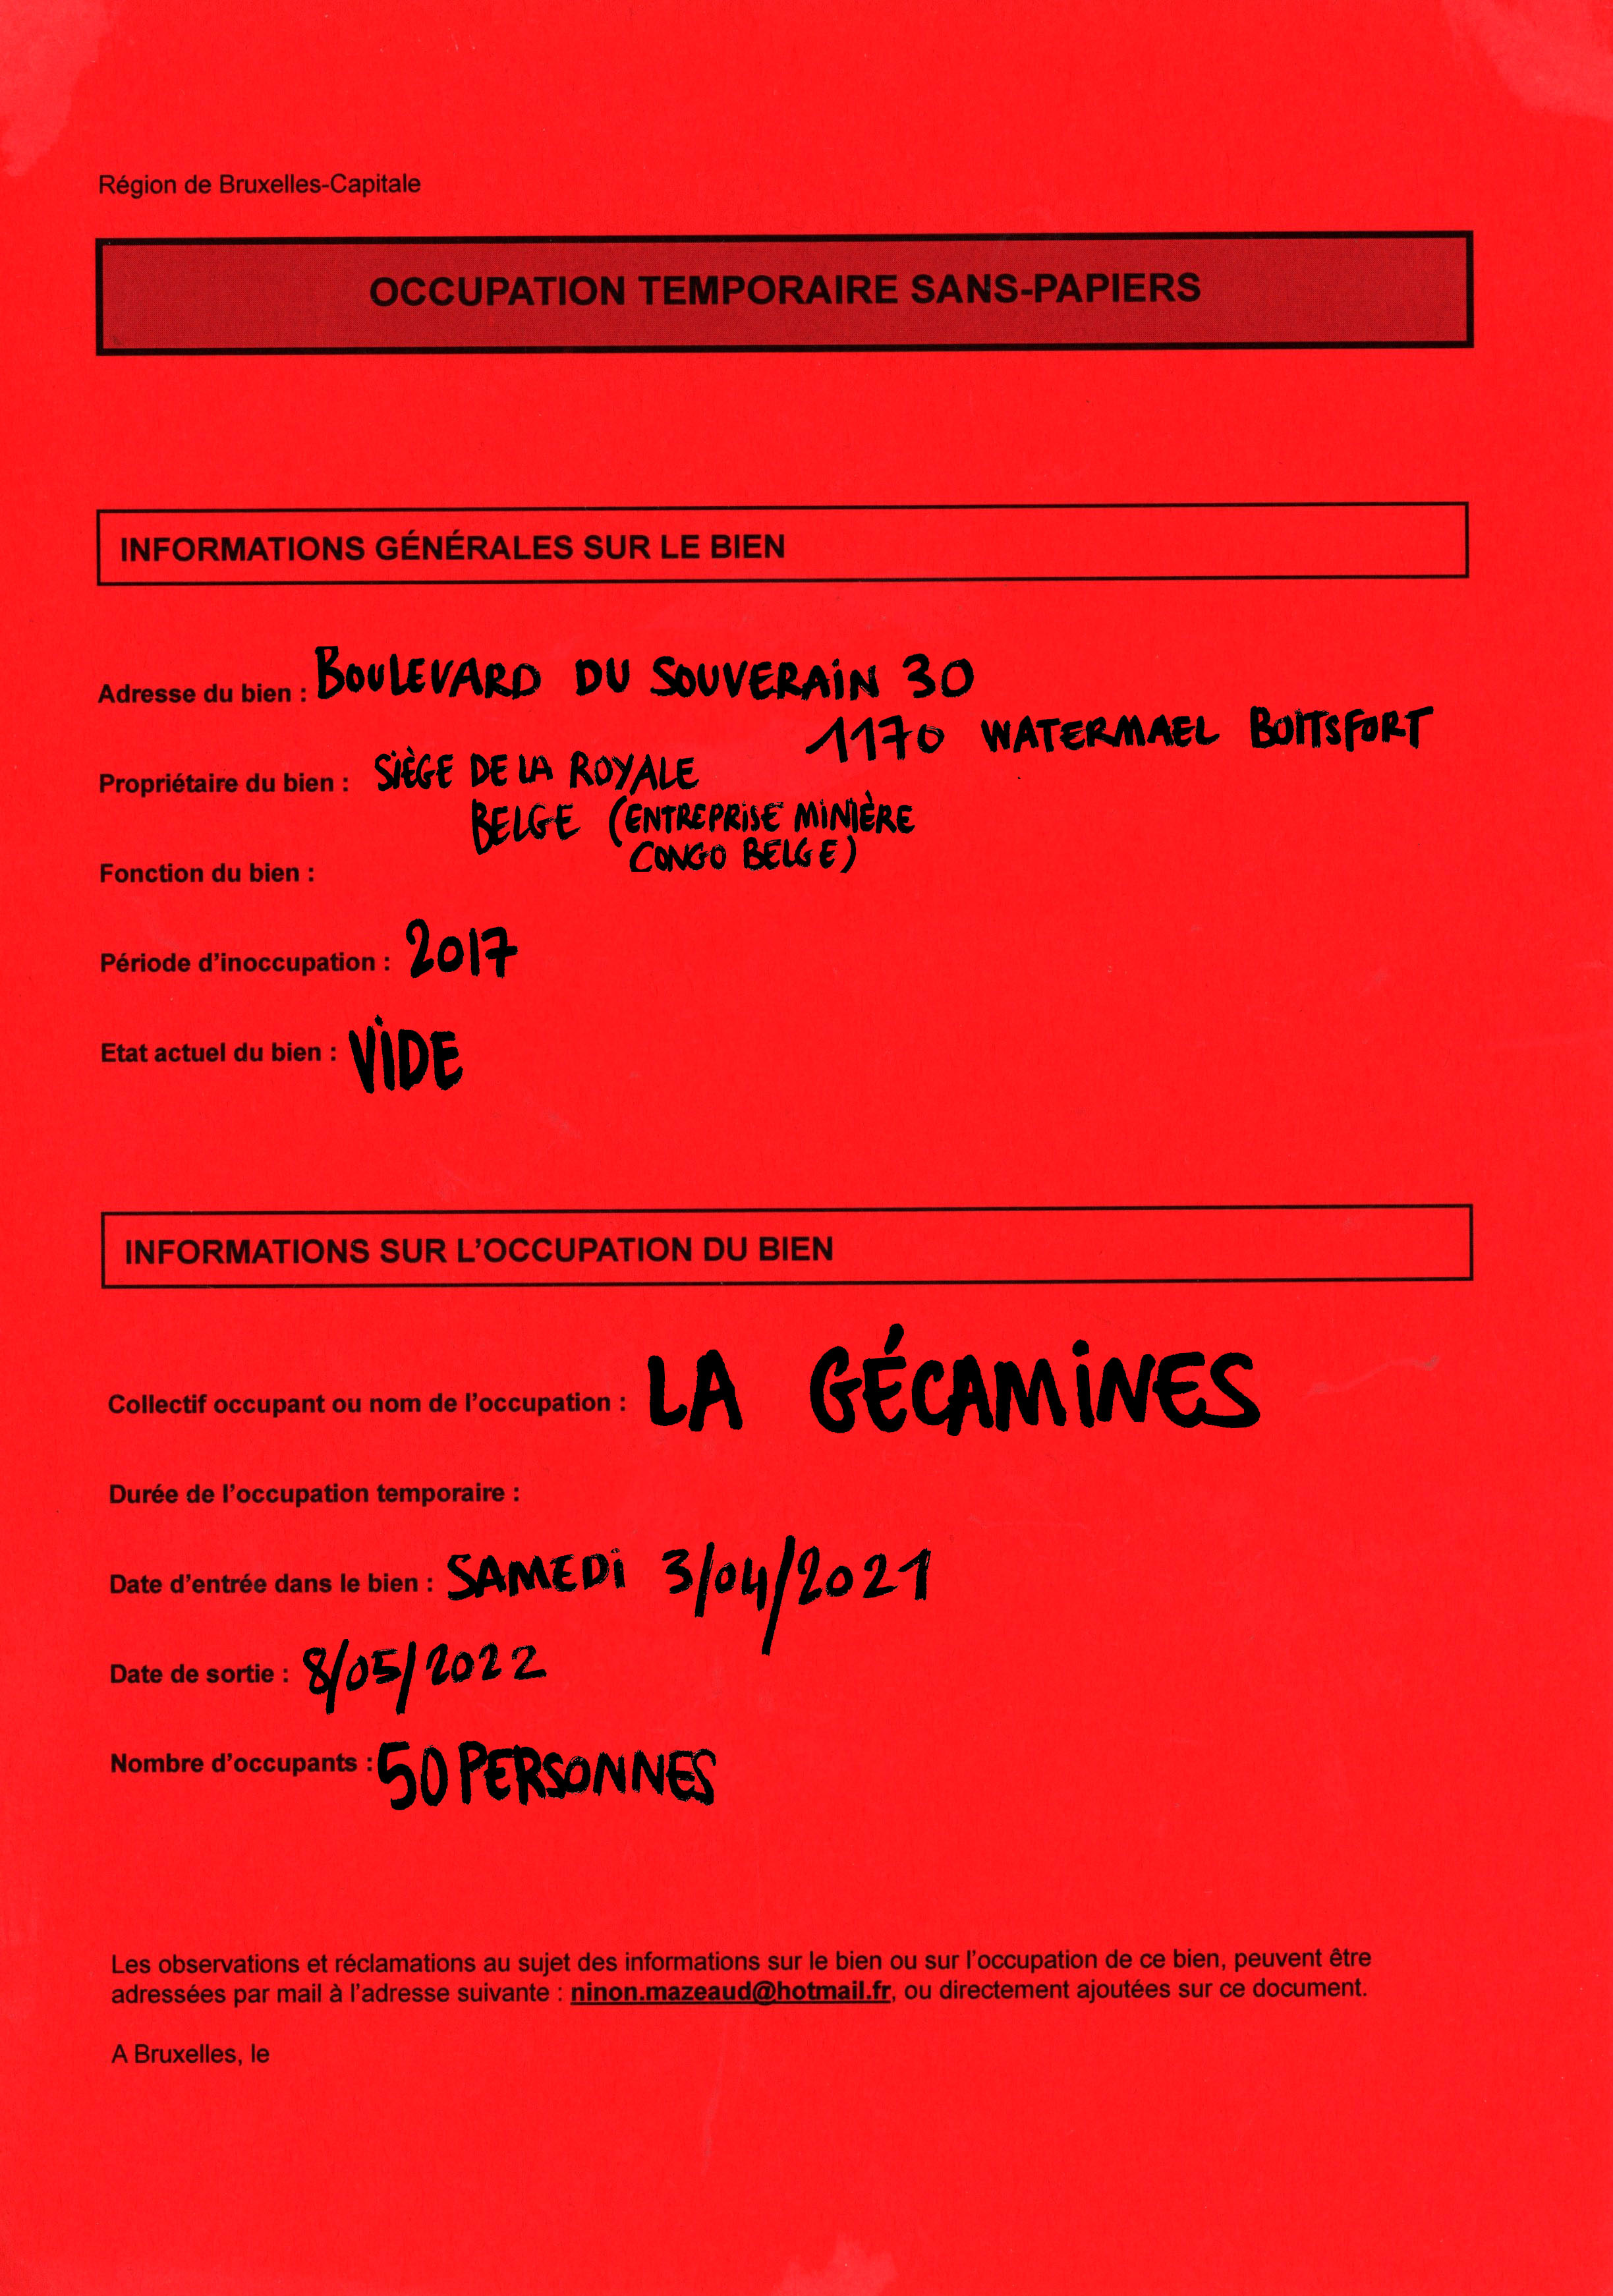 Région de Bruxelles-Capitale
OCCUPATION TEMPORAIRE SANS-PAPIERS
INFORMATIONS GÉNÉRALES SUR LE BIEN
Adresse du bien : BOULEVARD DU SOUVERAIN 30
1170 WATERMAEL BOITSFORT
Propriétaire du bien : SIÈGE DE LA ROYALE
BELGE (ENTREPRISE MINIÈRE
CONGO BELGE)
Fonction du bien :
Période d'inoccupation : 2017
Etat actuel du bien : VIDE
INFORMATIONS SUR L'OCCUPATION DU BIEN
Collectif occupant ou nom de l'occupation : LA GÉCAMINES
Durée de l'occupation temporaire :
Date d'entrée dans le bien : SAMEDI 3/04/2021
Date de sortie : 8/05/2022
Nombre d'occupants : 50 PERSONNES
Les observations et réclamations au sujet des informations sur le bien ou sur l'occupation de ce bien, peuvent être
adressées par mail à l'adresse suivante : ninon.mazeaud@hotmail.fr, ou directement ajoutées sur ce document.
A Bruxelles, le